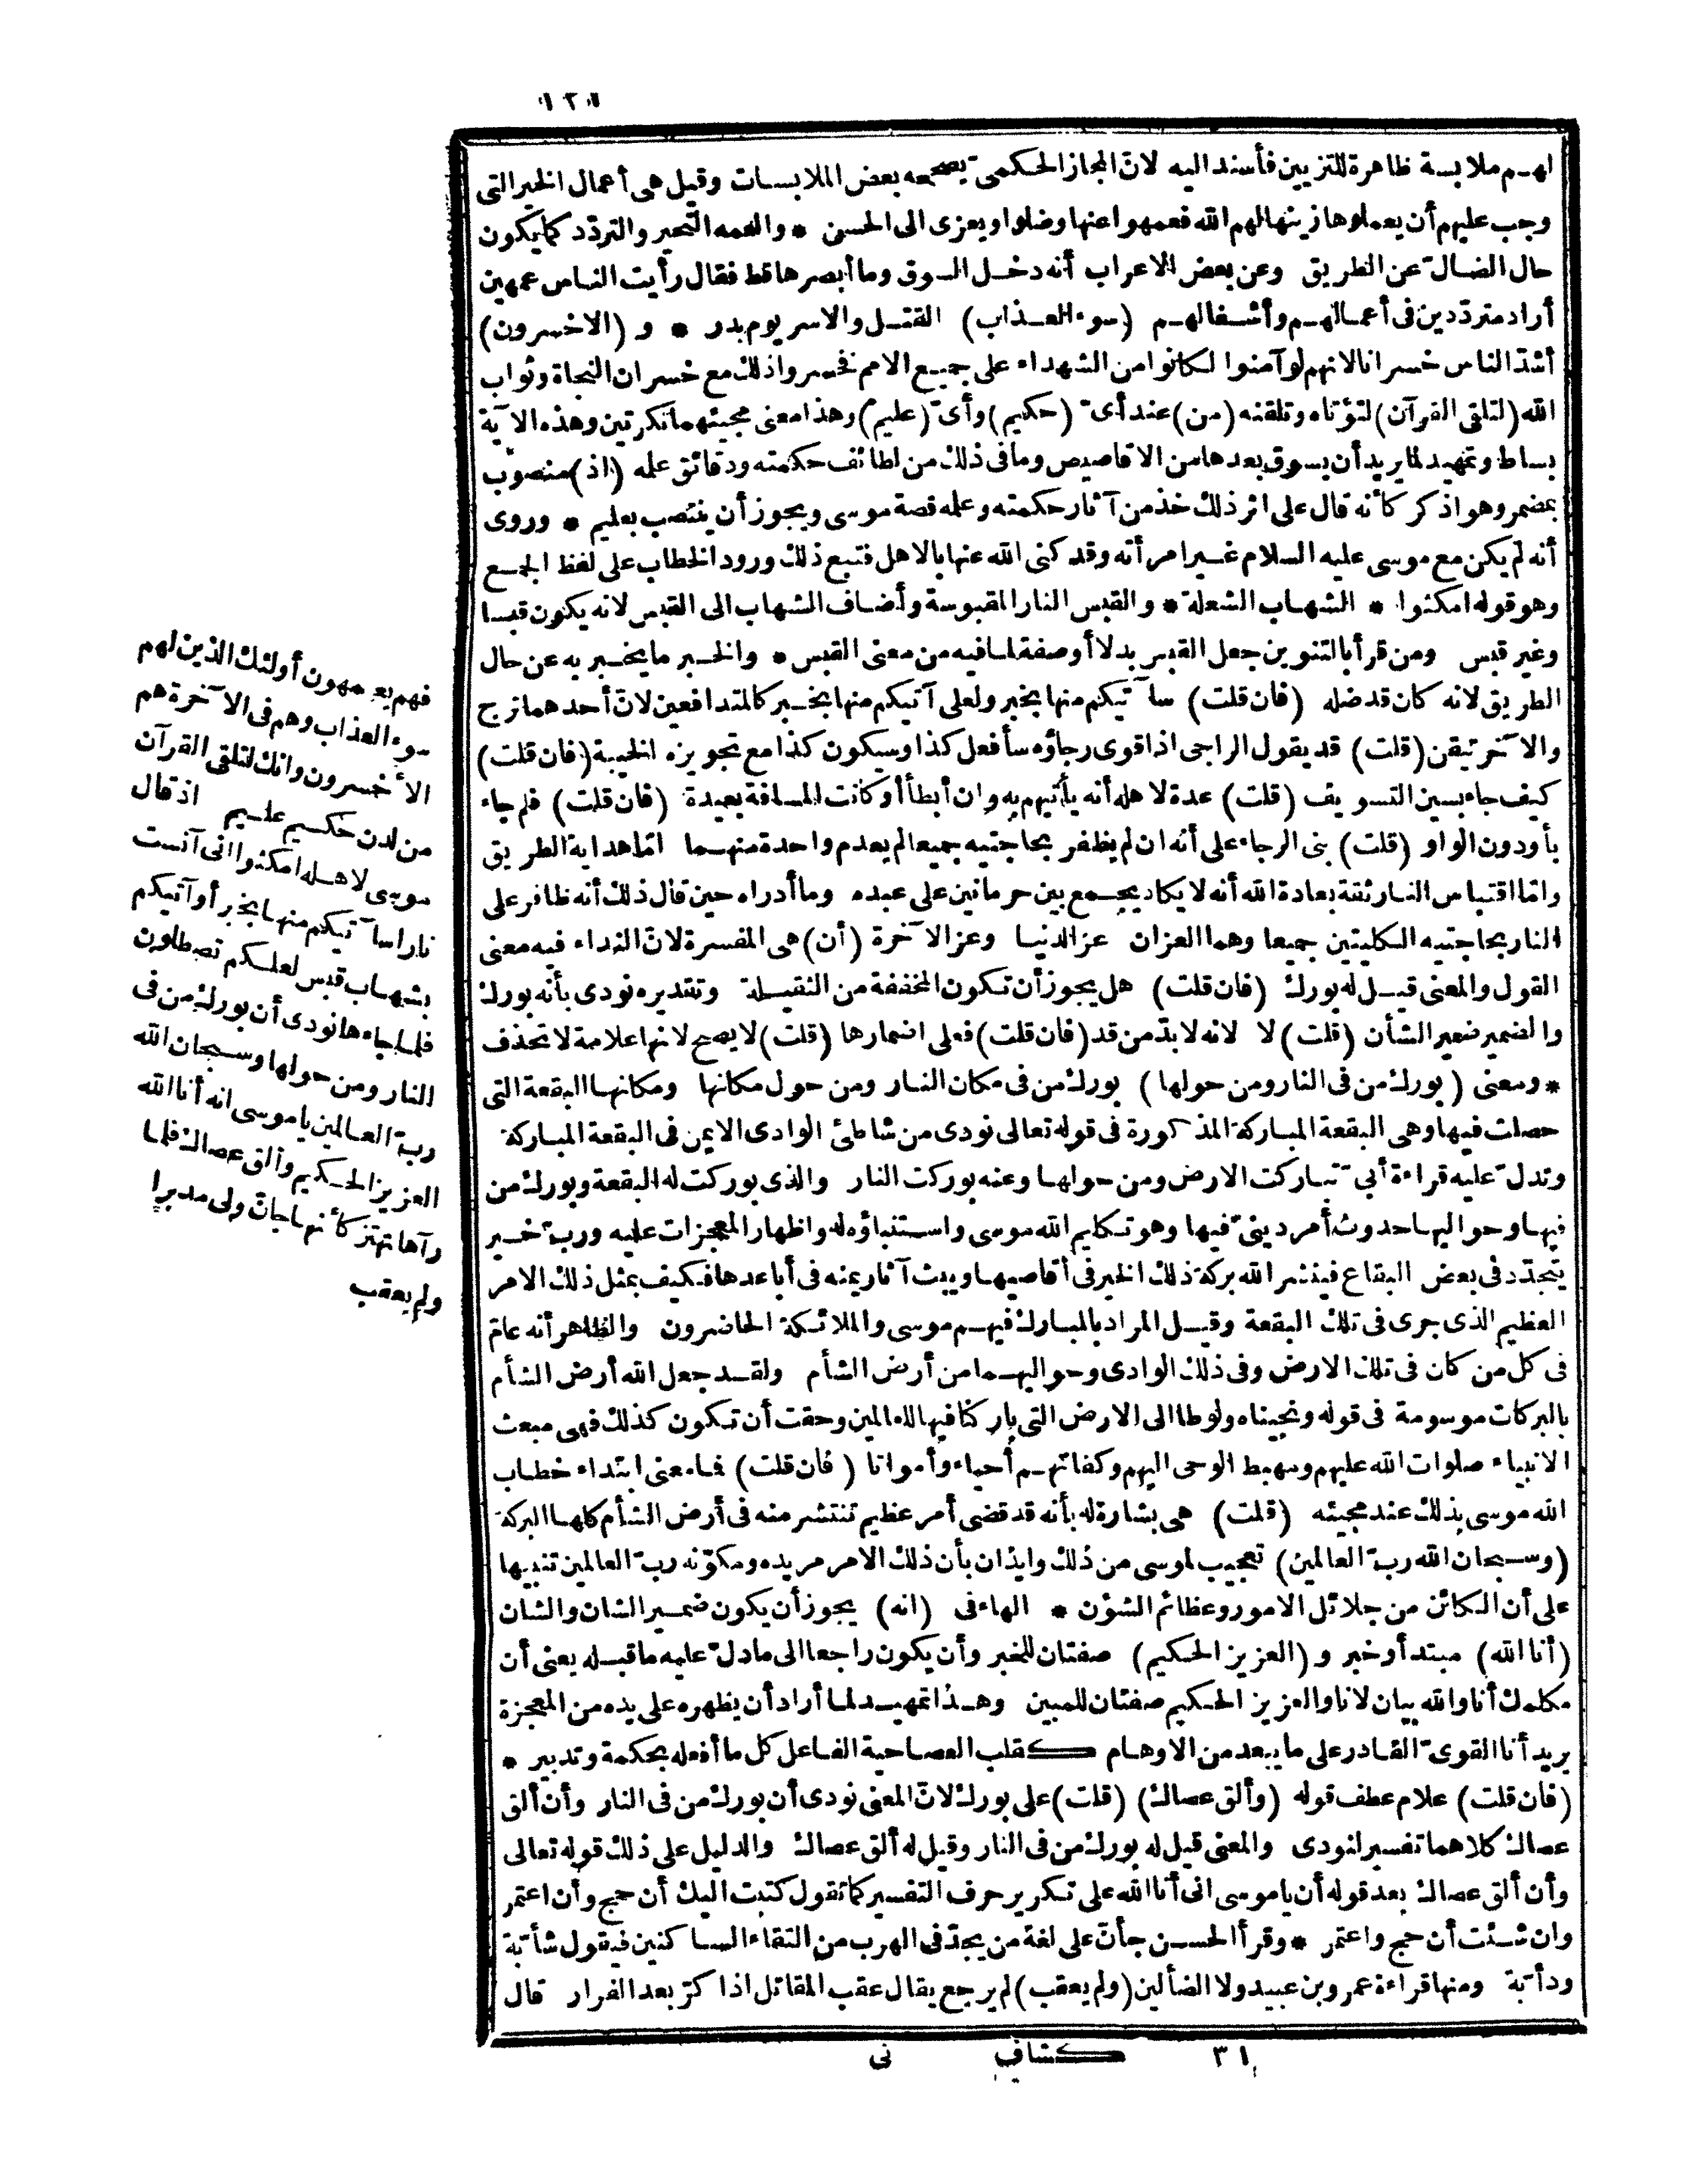 لهم ملابسة ظاهرة للتزيين فأسند اليه لانّ المجاز الحكمىّ يصححه بعض الملابسات وقيل هى أعمال الخير التى
وجب عليهم أن يعملوها زينها لهم الله فعمهوا عنها وضلوا ويعزى الى الحسن * والعمه التحير والتردّد كما يكون
حال الضالّ عن الطريق وعن بعض الاعراب أنه دخل السوق وما أبصرها قط فقال رأيت الناس عمهين
أراد متردّدين فى أعمالهم وأشغالهم (سوء العذاب) القتل والاسر يوم بدر * و (الاخسرون)
أشدّ الناس خسرانا لانهم لو آمنوا لكانوا من الشهداء على جميع الامم فخسروا ذلك مع خسران النجاة وثواب
الله (لتلقى القرآن) لتؤتاه وتلقنه (من) عند أىّ (حكيم) وأىّ (عليم) وهذا معنى مجيئهما نكرتين وهذه الآية
بساط وتمهيد لما يريد أن يسوق بعدها من الاقاصيص وما فى ذلك من لطائف حكمته ودقائق علمه (اذ) منصوب
بمضمر وهو اذكر كأنه قال على اثر ذلك خذ من آثار حكمته وعلمه قصة موسى ويجوز أن ينتصب بعليم * وروى
أنه لم يكن مع موسى عليه السلام غير امرأته وقد كنى الله عنها بالاهل فتبع ذلك ورود الخطاب على لفظ الجمع
وهو قوله امكثوا * الشهاب الشعلة * والقبس النار المقبوسة وأضاف الشهاب الى القبس لانه يكون قبسا
وغير قبس ومن قرأ بالتنوين جعل القبس بدلا أو صفة لما فيه من معنى القبس * والخبر ما يخبر به عن حال
الطريق لانه كان قد ضله (فان قلت) سآتيكم منها بخبر ولعلى آتيكم منها بخبر كالمتدافعين لانّ أحدهما ترج
والآخر تيقن (قلت) قد يقول الراجى اذا قوى رجاؤه سأفعل كذا وسيكون كذا مع تجويزه الخيبة (فان قلت)
كيف جاء بسين التسويف (قلت) عدة لاهله أنه يأتيهم به وان أبطأ أو كانت المسافة بعيدة (فان قلت) فلم جاء
بأو دون الواو (قلت) بنى الرجاء على أنه ان لم يظفر بحاجتيه جميعا لم يعدم واحدة منهما امّا هداية الطريق
وامّا اقتباس النار ثقة بعادة الله أنه لا يكاد يجمع بين حرمانين على عبده وما أدراه حين قال ذلك أنه ظافر على
النار بحاجتيه الكليتين جميعا وهما العزان عز الدنيا وعز الآخرة (أن) هى المفسرة لانّ النداء فيه معنى
القول والمعنى قيل له بورك (فان قلت) هل يجوز أن تكون المخففة من الثقيلة وتقديره نودى بأنه بورك
والضمير ضمير الشأن (قلت) لا لانه لا بدّ من قد (فان قلت) فعلى اضمارها (قلت) لا يصح لانها علامة لا تحذف
* ومعنى (بورك من فى النار ومن حولها) بورك من فى مكان النار ومن حول مكانها ومكانها البقعة التى
حصلت فيها وهى البقعة المباركة المذكورة فى قوله تعالى نودى من شاطئ الوادى الايمن فى البقعة المباركة
وتدلّ عليه قراءة أبىّ تباركت الارض ومن حولها وعنه بوركت النار والذى بوركت له البقعة وبورك من
فيها وحواليها حدوث أمر دينىّ فيها وهو تكليم الله موسى واستنباؤه له واظهار المعجزات عليه وربّ خير
يتجدّد فى بعض البقاع فينشر الله بركة ذلك الخير فى أقاصيها ويبث آثار يمنه فى أباعدها فكيف بمثل ذلك الامر
العظيم الذى جرى فى تلك البقعة وقيل المراد بالمبارك فيهم موسى والملائكة الحاضرون والظاهر أنه عامّ
فى كل من كان فى تلك الارض وفى ذلك الوادى وحواليهما من أرض الشأم ولقد جعل الله أرض الشأم
بالبركات موسومة فى قوله ونجيناه ولوطا الى الارض التى باركنا فيها للعالمين وحقت أن تكون كذلك فهى مبعث
الانبياء صلوات الله عليهم ومهبط الوحى اليهم وكفاتهم أحياء وأمواتا (فان قلت) فما معنى ابتداء خطاب
الله موسى بذلك عند مجيئه (قلت) هى بشارة له بأنه قد قضى أمر عظيم تنتشر منه فى أرض الشأم كلها البركة
(وسبحان الله ربّ العالمين) تعجيب لموسى من ذلك وايذان بأن ذلك الامر مريده ومكوّنه ربّ العالمين تنبيها
على أن الكائن من جلائل الامور وعظائم الشؤن * الهاء فى (انه) يجوز أن يكون ضمير الشان والشان
(أنا الله) مبتدأ وخبر و (العزيز الحكيم) صفتان للخبر وأن يكون راجعا الى ما دلّ عليه ما قبله يعنى أن
مكلمك أنا والله بيان لانا والعزيز الحكيم صفتان للمبين وهذا تمهيد لما أراد أن يظهره على يده من المعجزة
يريد أنا القوىّ القادر على ما يبعد من الاوهام كقلب العصا حية الفاعل كل ما أفعله بحكمة وتدبير *
(فان قلت) علام عطف قوله (وألق عصاك) (قلت) على بورك لانّ المعنى نودى أن بورك من فى النار وأن ألق
عصاك كلاهما تفسير لنودى والمعنى قيل له بورك من فى النار وقيل له ألق عصاك والدليل على ذلك قوله تعالى
وأن ألق عصاك بعد قوله أن يا موسى انى أنا الله على تكرير حرف التفسير كما تقول كتبت اليك أن حج وأن اعتمر
وان شئت أن حج واعتمر * وقرأ الحسن جأنّ على لغة من يجدّ فى الهرب من التقاء الساكنين فيقول شأبّة
ودأبّة ومنها قراءة عمرو بن عبيد ولا الضألين (ولم يعقب) لم يرجع يقال عقب المقاتل اذا كرّ بعد الفرار قال
فهم يعمهون أولئك الذين لهم
سوء العذاب وهم فى الآخرة هم
الأخسرون وانك لتلقى القرآن
من لدن حكيم عليم اذ قال
موسى لاهله امكثوا انى آنست
نارا سآتيكم منها بخبر أو آتيكم
بشهاب قبس لعلكم تصطلون
فلما جاءها نودى أن بورك من فى
النار ومن حولها وسبحان الله
ربّ العالمين يا موسى انه أنا الله
العزيز الحكيم وألق عصاك فلما
رآها تهتز كأنها جانّ ولى مدبرا
ولم يعقب
٣١ كشاف نى